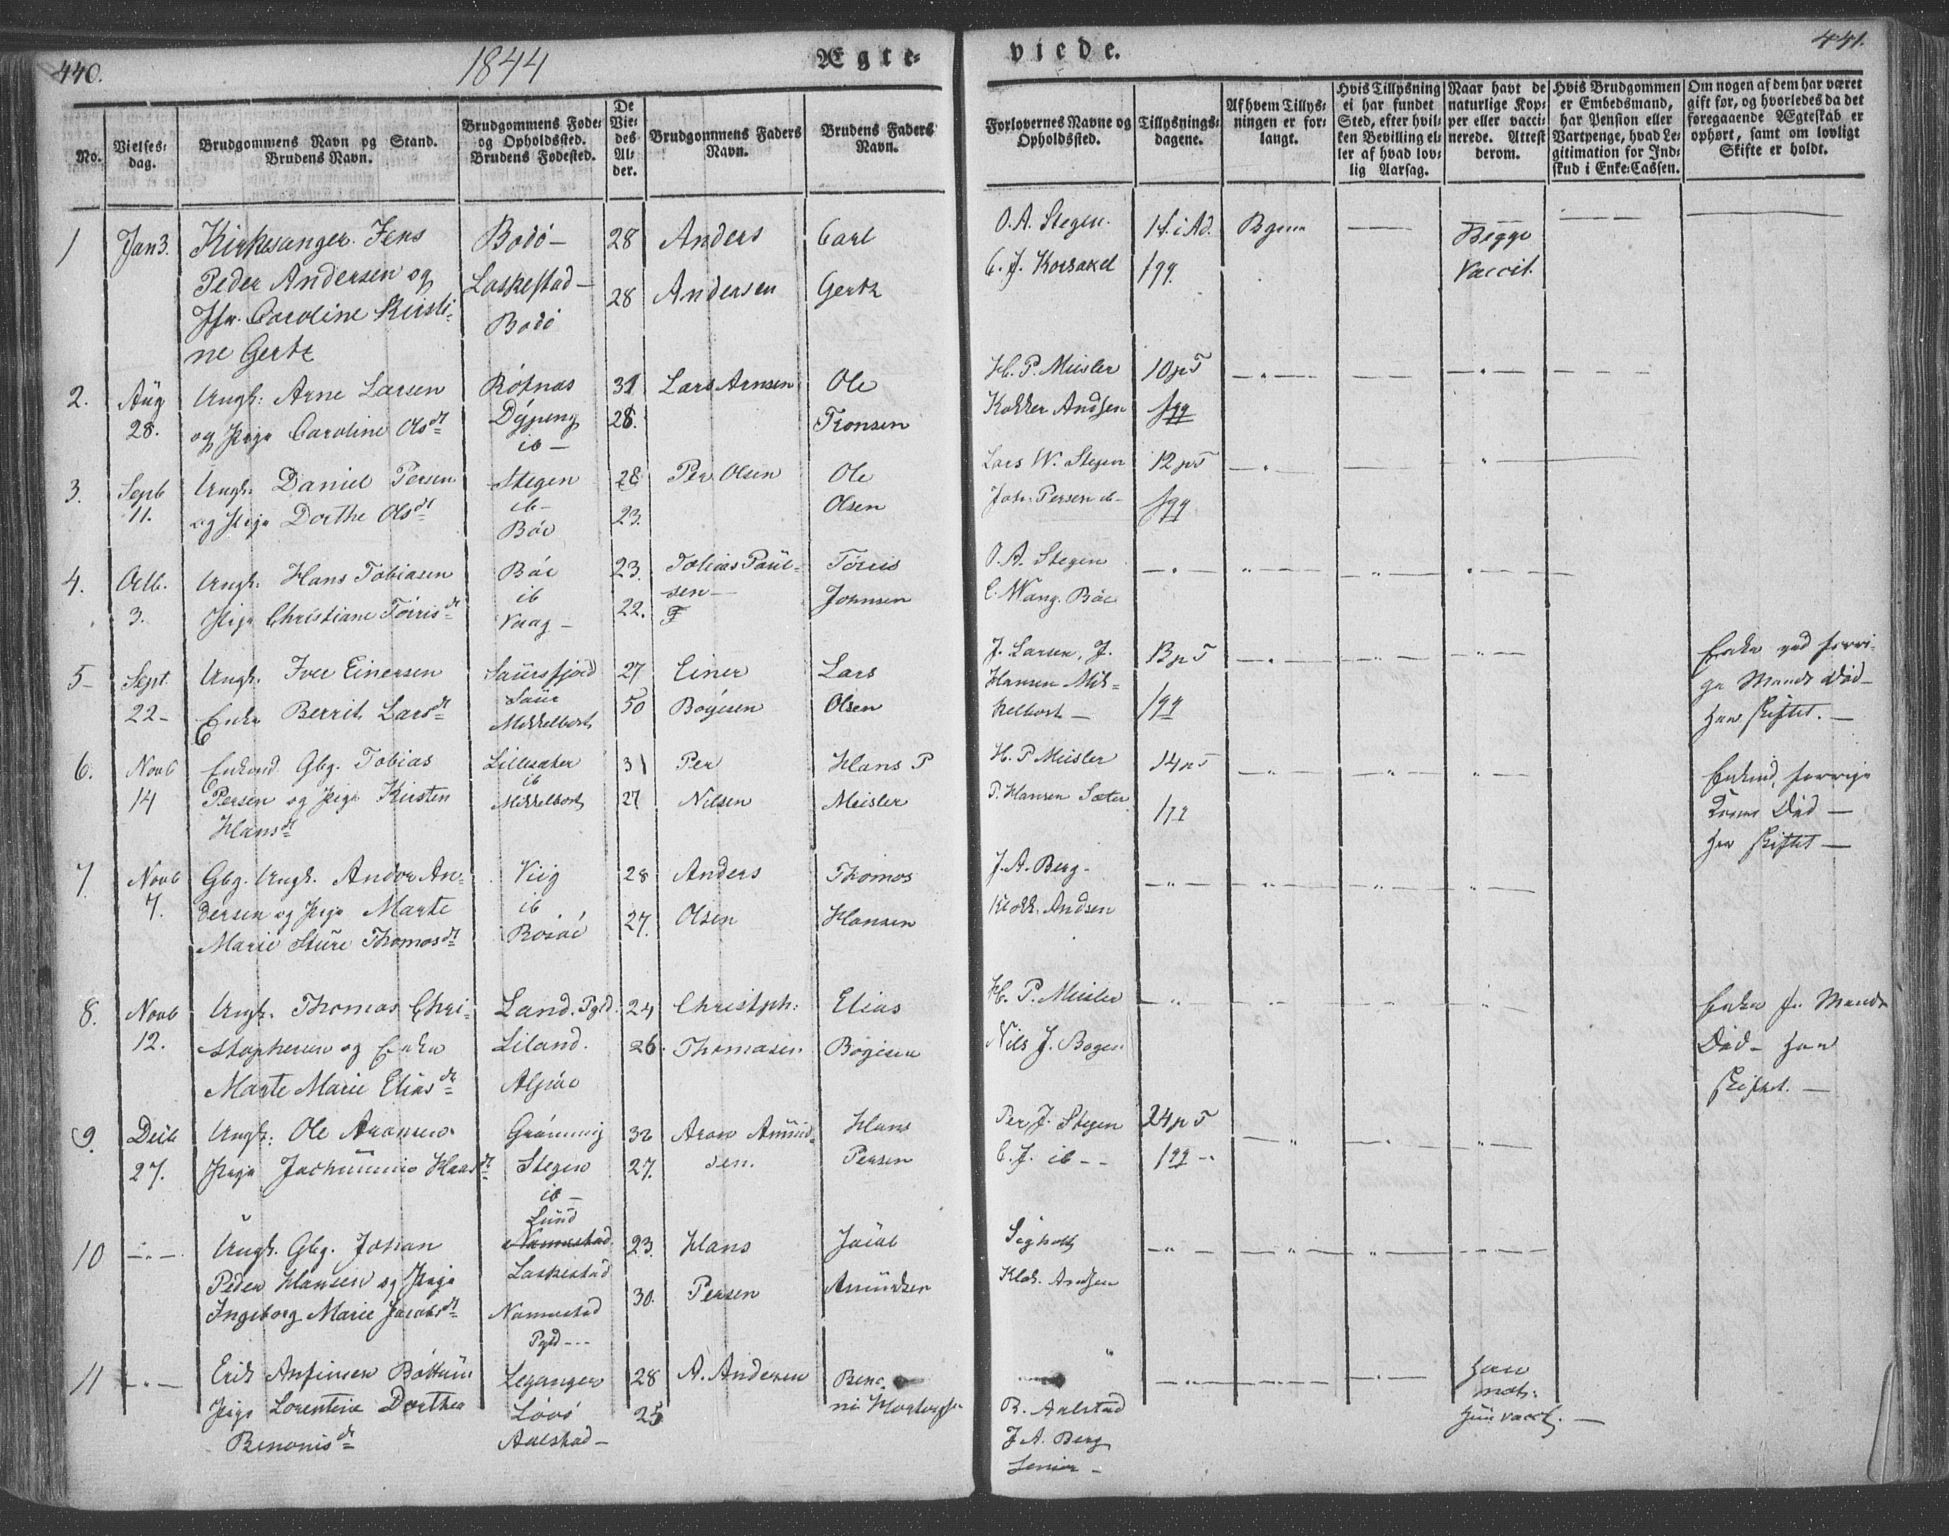 440.
1844
Ægte-
viede.
441.
No.
Vielses-
dag.
Brudgommens Navn og Stand.
Brudens Navn.
Brudgommens Føde-
og Opholdssted.
Brudens Fødested.
De
Vie-
des
Al-
der.
Brudgommens Faders
Navn.
Brudens Faders
Navn.
Forlovernes Navne og
Opholdssted.
Tillysnings-
dagene.
Af hvem Tillys-
ningen er for-
langt.
Hvis Tillysning
ei har fundet
Sted, efter hvil-
ken Bevilling el-
ler af hvad lov-
lig Aarsag.
Naar havt de
naturlige Kop-
per eller vacci-
nerede. Attest
derom.
Hvis Brudgommen
er Embedsmand,
har Pension eller
Vartpenge, hvad Le-
gitimation for Ind-
skud i Enke-Cassen.
Om nogen af dem har været
gift før, og hvorledes da det
foregaaende Ægteskab er
ophørt, samt om lovligt
Skifte er holdt.
1
Jan 3.
Kirkesanger Jens
Peder Andersen og
Jfr. Caroline Kirsti-
ne Gertz
Bodö –
Laskestad –
Bodö
28
28
Anders
Andersen
Carl
Gertz
O. A. Stegen.
C. J. Korsakel
1 S. i Ad.
Begge
Vaccit.
2.
Aug
28.
Ungk: Arne Larsen
og Pige Caroline Olsdt
Rötnas
Dypeng
ib –
31
28.
Lars Arnsen
Ole
Tronsen
H. P. Meisler
Kokker Andsen
10 p T
3.
Septb
11.
Ungk. Daniel Persen
og Pige Dorthe Olsdt
Stegen
ib –
Böe
28
23.
Per Olsen
Ole
Olsen
Lars W. Stegen
Joh. Persen ib –
12 p T
4.
Octb.
3.
Ungk. Hans Tobiasen
Pige Christiane Törrisdt
Böe
ib
Vaag –
23.
22.
Tobias Paul-
sen –
Törris
Johnsen
O. A. Stegen
C. Wang. Böe
5 –
Sept
22 –
Ungk. Iver Einersen
Enke Berrit Larsdt
Saursfjord
Saur
Mikkelbost
27
50
Einer
Böyesen
Lars
Olsen
J. Larsen, J.
Hansen Mik-
kelbost –
13 p T
Enke ved forri-
ge Mands Död –
har skiftet. –
6.
Novb
14
Enkemd. Gbg. Tobias
Persen og Pige Kirsten
Hansdt
Lilleseter
ib
Mikkelbost
31
27
Per
Nilsen
Hans P
Meisler
H. P. Meisler
P. Hansen Sæter
14 p T
Enkemd, forrige
Kones Död –
har skiftet –
7.
Novb
7.
Gbg. Ungk. Andor An-
dersen og Pige Marte
Marie Sture Thomasdt
Viig
ib
Bosöe
28
27.
Anders
Olsen
Thomas
Hansen
J. A. Berg.
Klokk. Andsen
8.
Novb
12.
Ungk. Thomas Chri-
stophersen og Enke
Marte Marie Eliasdt
Land. Pgld.
Liland.
Alpöe
24
26.
Christph:
Thomasen
Elias
Bogesen
H. P. Meisler
Nils J. Bogen
Enke f. Mands
Död – har
skiftet. –
9.
Decb
27.
Ungk: Ole Aronsen
Pige Jachumine Hansdt
Grönning
Stegen
ib –
32
27.
Aron Amund-
sen.
Hans
Persen
Per J. Stegen
C. J. ib – –
24 p T
10
Ungk. Gbg. Johan
Peder Hansen og Pige
Ingeborg Marie Jacobsdt
Lund
Nannestad
Laskestad
Nannestad
Pgld – – –
23.
30.
Hans
Persen
Jacob
Amundsen
Sigholt
Klok. Andsen
11
Erik Anfinsen Böttum
Pige Lorentine Dorthea
Benonisdt
Leganger
Lövö
Aalstad –
28
25
A. Andersen
Beno-
ni Hartvigsen
B. Aalstad
J A. Berg
Senior –
Han
nat:
Hun vacct. –